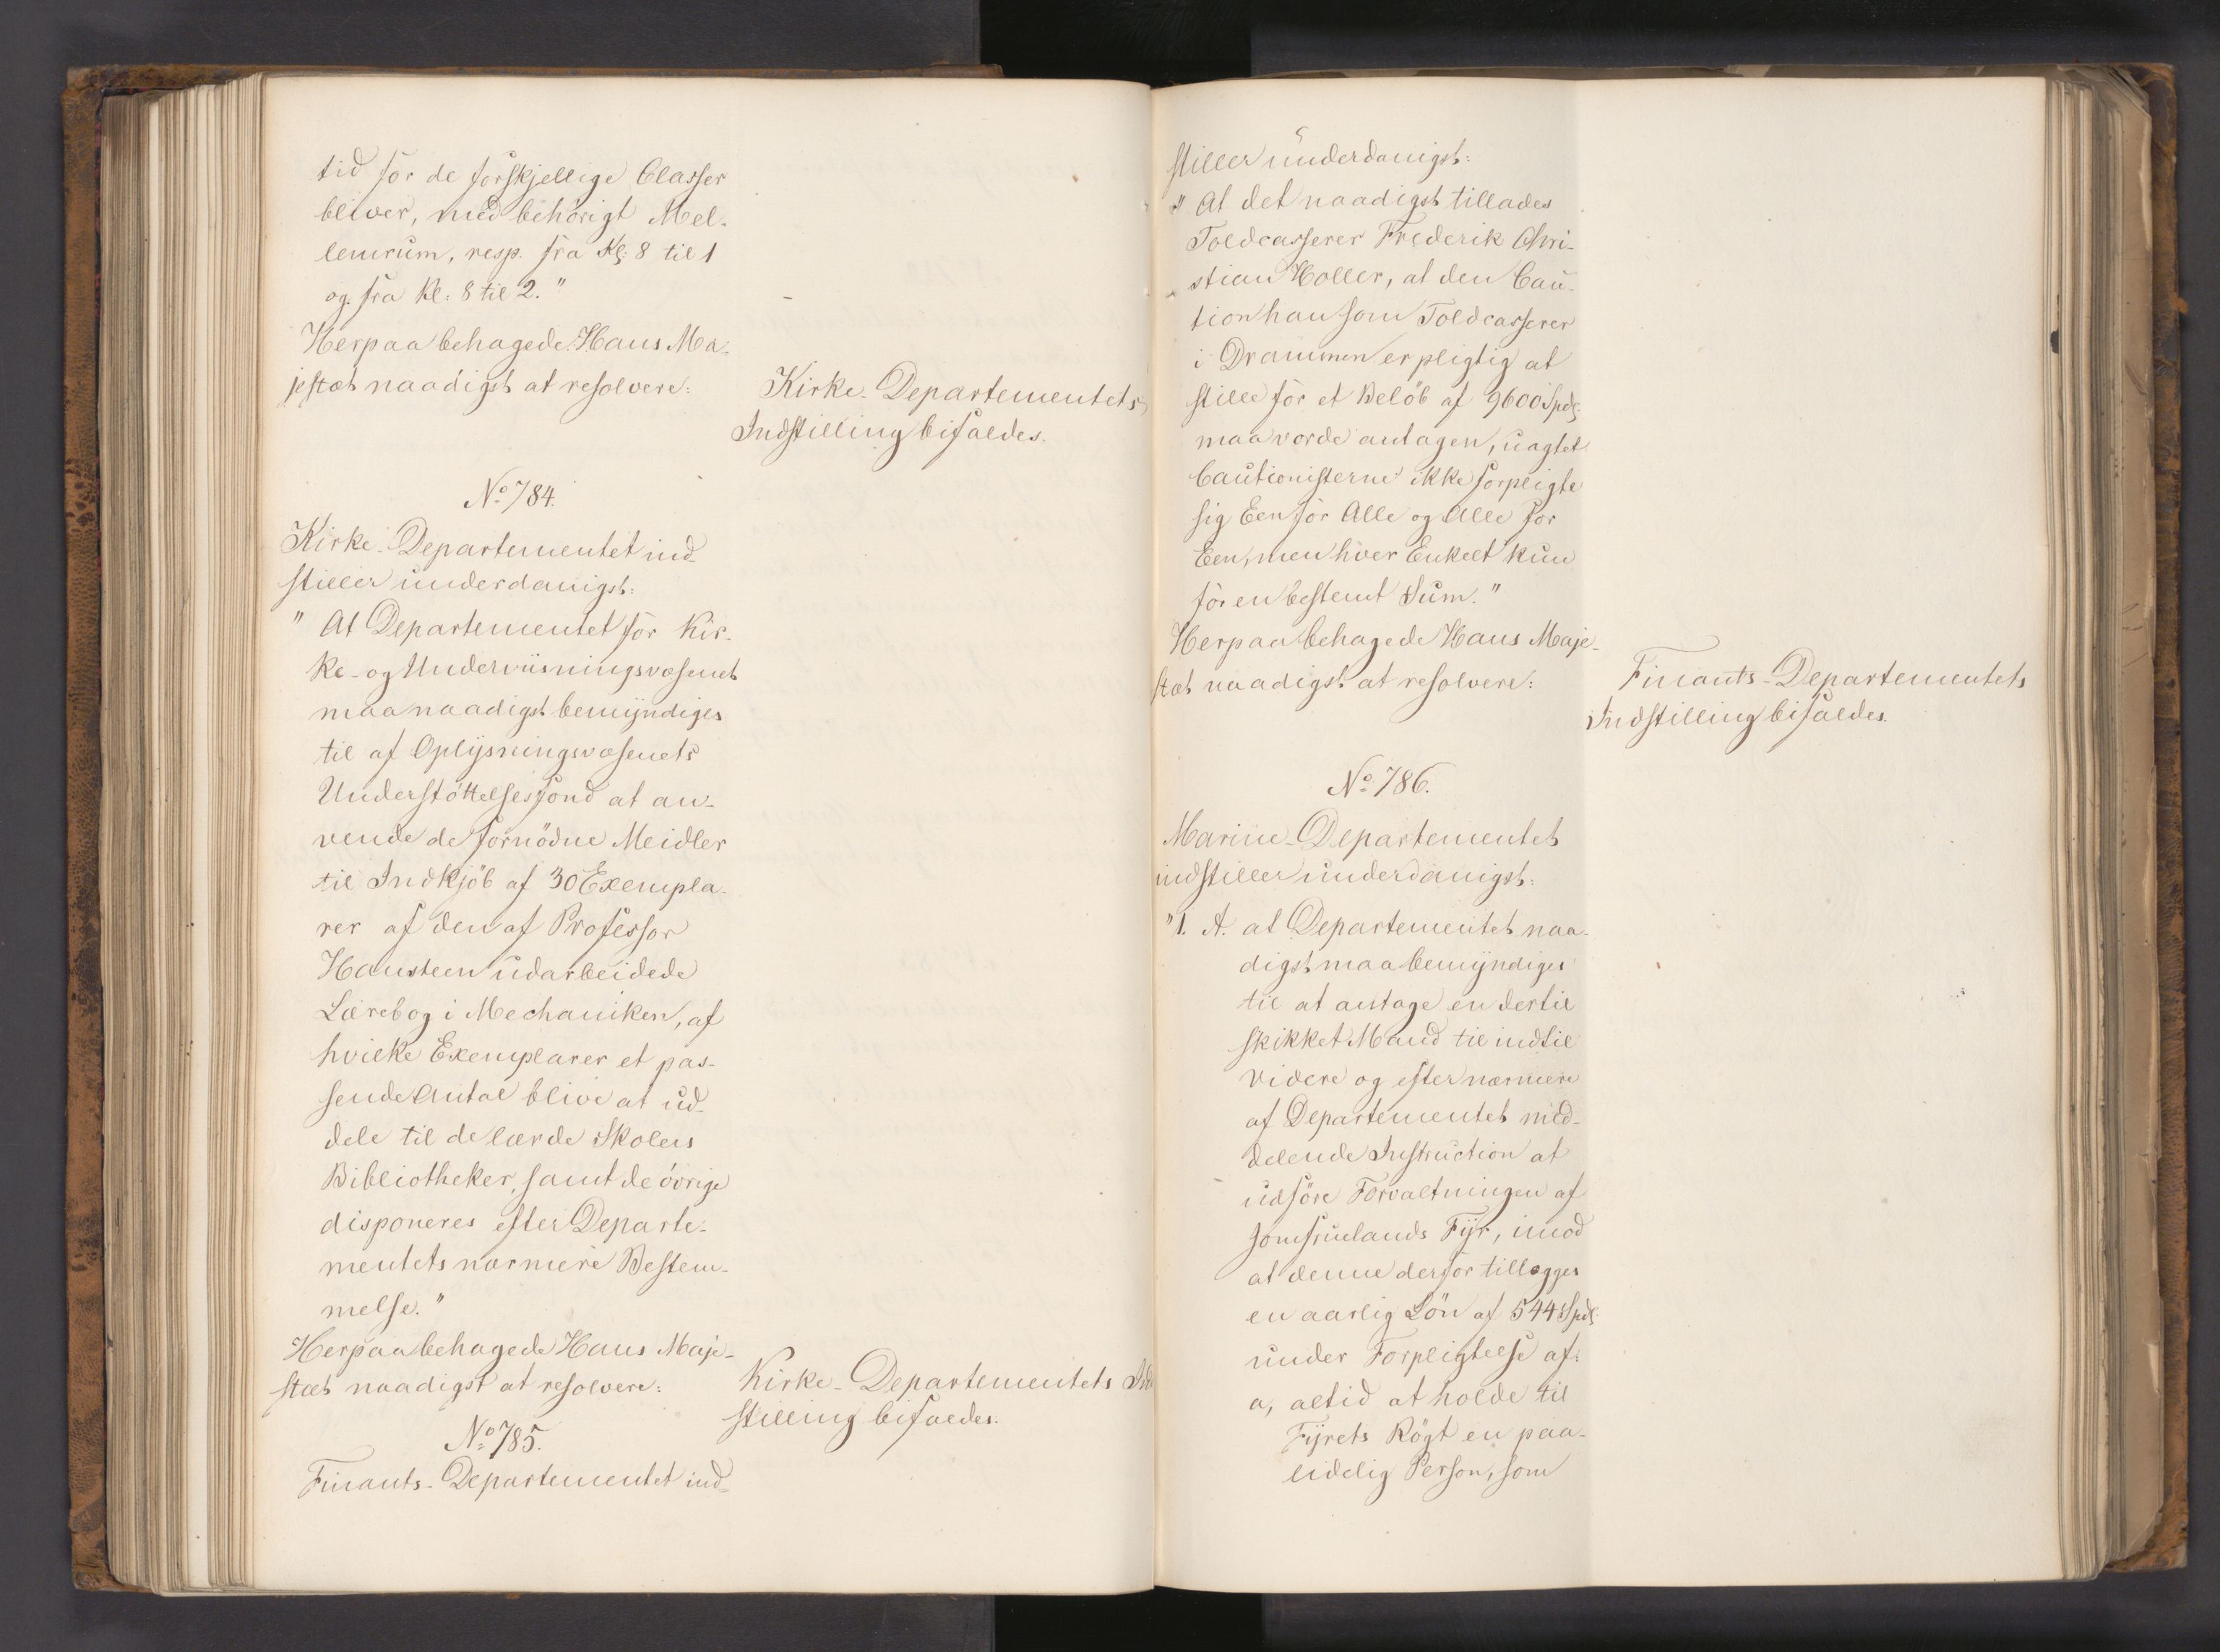 tid for de forskjellige Classer
bliver, med behörigt Mel-
lemrum, resp. fra Kl: 8 til 1
og fra Kl: 8 til 2."
Herpaa behagede Hans Ma-
jestæt naadigst at resolvere:
Kirke-Departementets
Indstilling bifaldes.
No 784.
Kirke-Departementet ind-
stiller underdanigst:
" At Departementet for Kir-
ke- og Underviisningsvæsenet
maa naadigst bemyndiges
til af Oplysningsvæsenets
Understöttelsesfond at an-
vende de fornödne Meidler
til Indkjöb af 30 Exempla-
rer af den af Professor
Hansteen udarbeidede
Lærebog i Mechaniken, af
hvilke Exemplarer et pas-
sende Antal blive at ud-
dele til de lærde Skolers
Bibliotheker, samt de övrige
disponeres efter Departe-
mentets nærmere Bestem-
melse."
Herpaa behagede Hans Maje-
stæt naadigst at resolvere:
Kirke-Departementets Ind
stilling bifaldes.
No 785.
Finants-Departementet ind-
stiller underdanigst:
" At det naadigst tillades
Toldcasserer Frederik Chri-
stian Holler, at den Cau-
tion han som Toldcasserer
i Drammen er pligtig at
stille for et Belöb af 9600 Spdl:
maa vorde antagen, uagtet
Cautionisterne ikke forpligte
sig Een for Alle og Alle for
Een, men hver Enkelt kun
for en bestemt Sum."
Herpaa behagede Hans Maje-
stæt naadigst at resolvere:
Finants-Departementets
Indstilling bifaldes.
No 786.
Marine-Departementet
indstiller underdanigst:
"1. A. at Departementet naa-
digst maa bemyndiges
til at antage en dertil
skikket Mand til indtil
videre og efter nærmere
af Departementet med-
delende Instruction at
udföre Forvaltningen af
Jomfruelands Fyr, imod
at denne derfor tillægges
en aarlig Lön af 544 Spdl:
under Forpligtelse af:
a, altid at holde til
Fyrets Rögt en paa-
lidelig Person, som